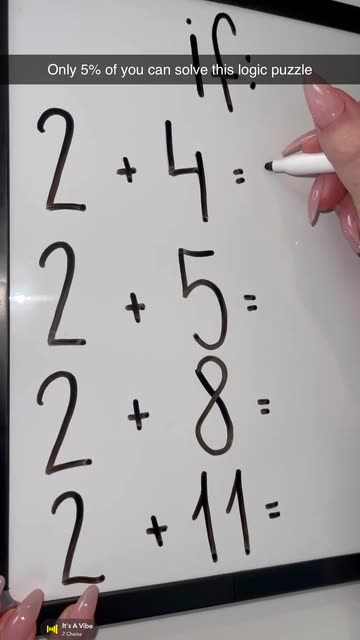 if:
Only 5% of you can solve this logic puzzle
2 + 4 =
2 + 5 =
2 + 8 =
2 + 11 =
It's A Vibe
2 Chainz